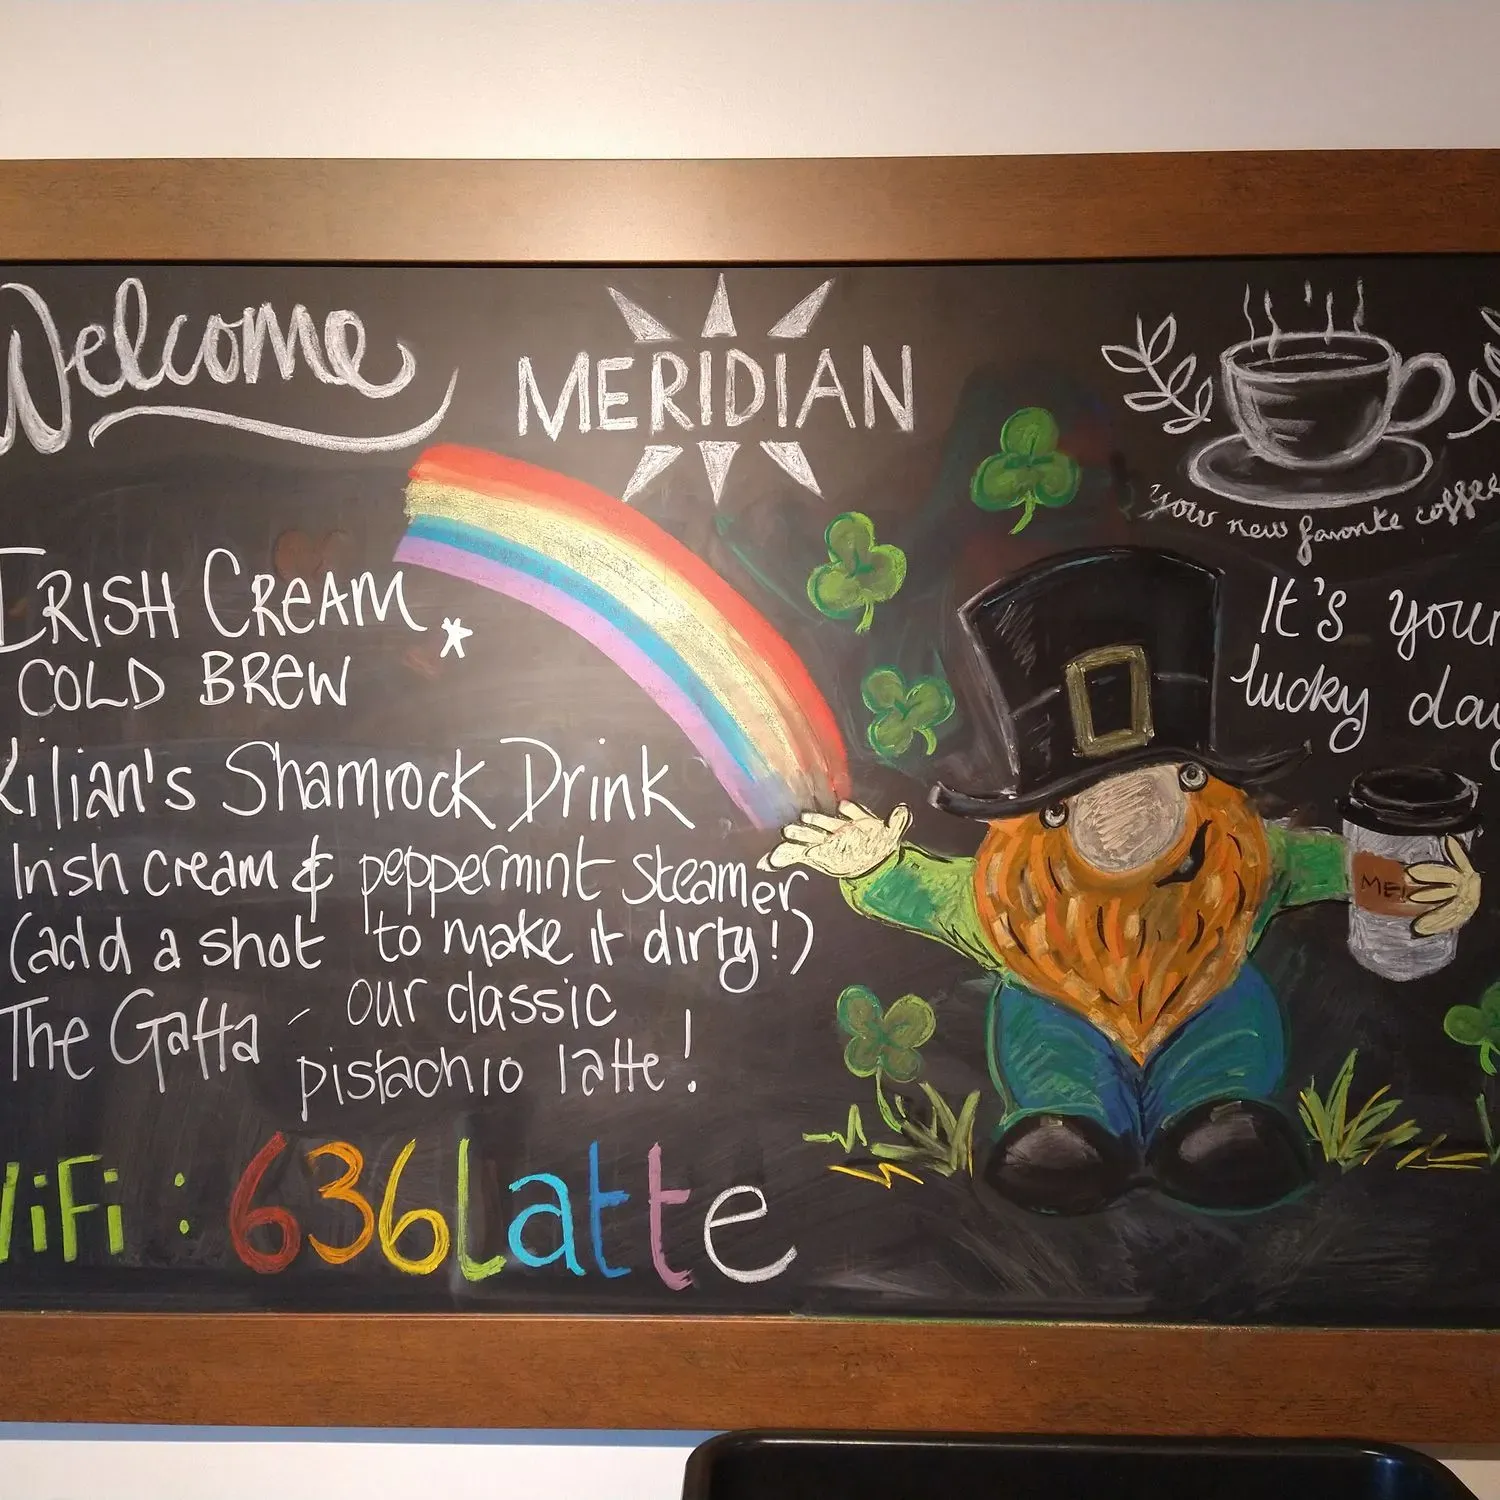 Welcome
MERIDIAN
your new favorite coffee
IRISH CREAM *
COLD BREW
Kilian's Shamrock Drink
Irish cream & peppermint steamer
(add a shot to make it dirty!)
The Gatta - our classic
pistachio latte!
WiFi : 636Latte
It's your
lucky day